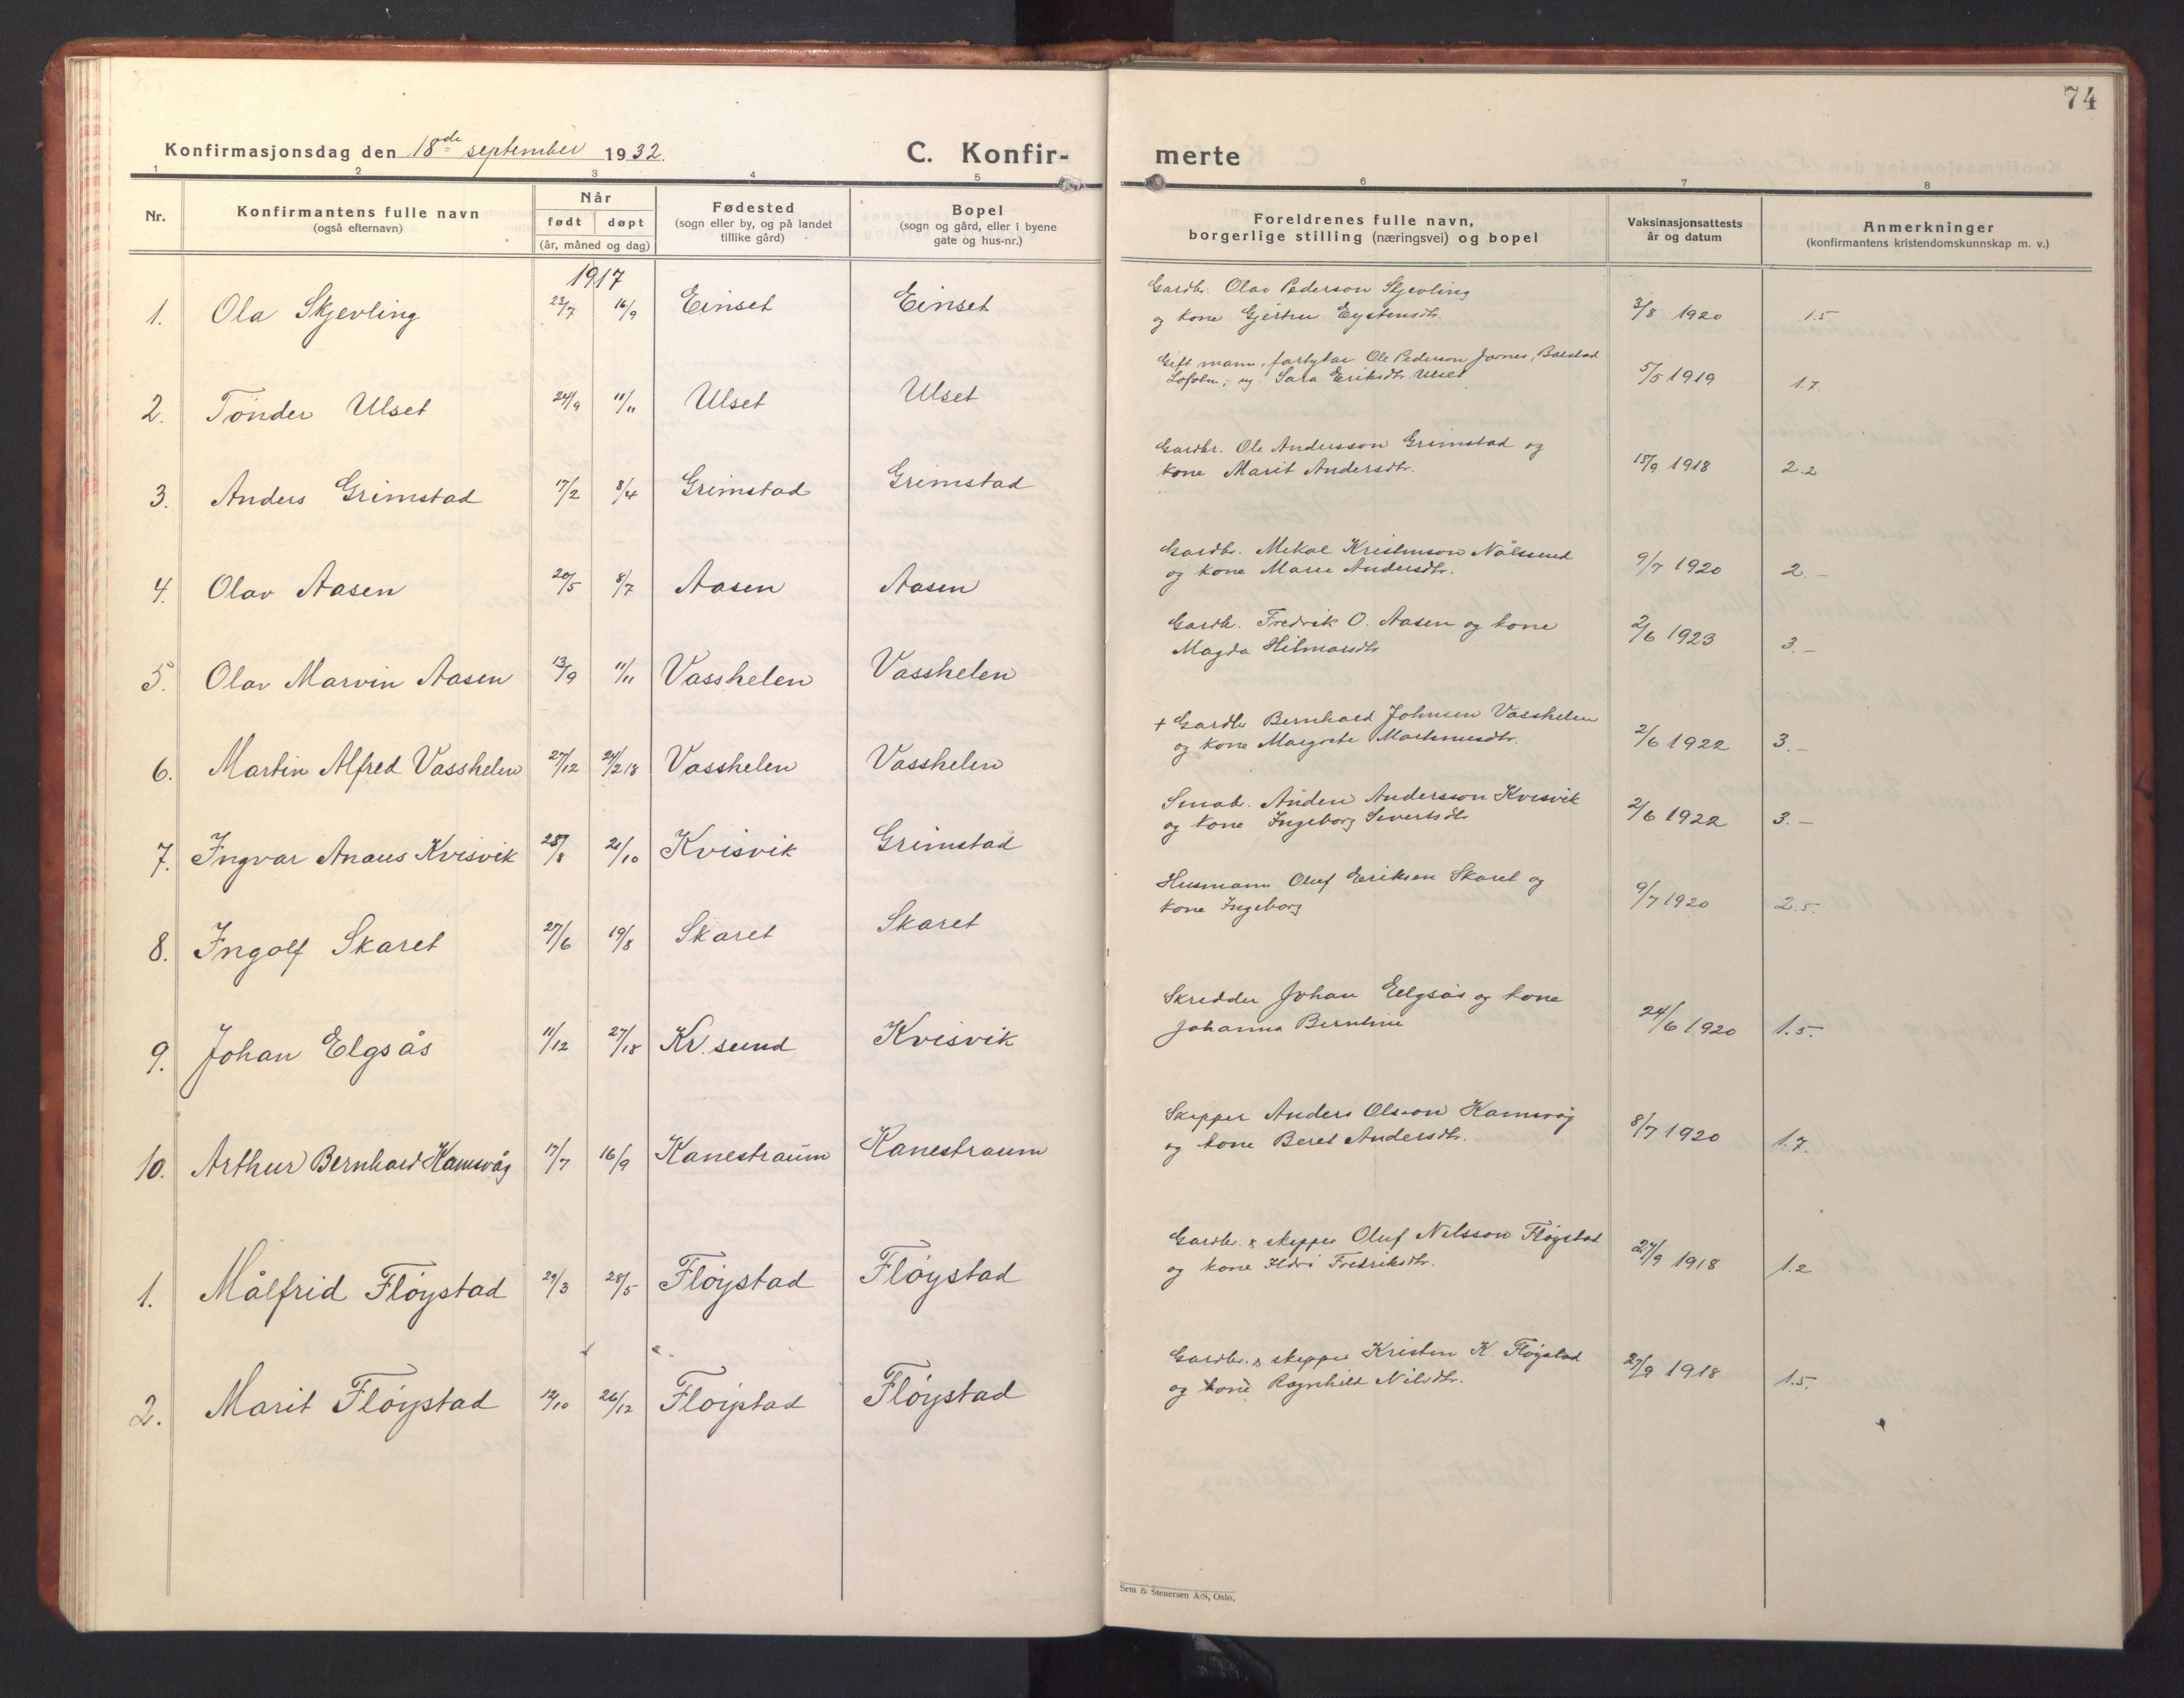 74
Konfirmasjonsdag den 18de september 1932.
C. Konfir-
merte
1 2 3 4 5 6 7 8
Nr.
Konfirmantens fulle navn
(også efternavn)
Når
født døpt
(år, måned og dag)
Fødested
(sogn eller by, og på landet
tillike gård)
Bopel
(sogn og gård, eller i byene
gate og hus-nr.)
Foreldrenes fulle navn,
borgerlige stilling (næringsvei) og bopel
Vaksinasjonsattests
år og datum
Anmerkninger
(konfirmantens kristendomskunnskap m. v.)
1917
1. Ola Skjevling 23/7 16/9 Einset Einset
Gardbr. Olav Pederson Skjevling
og kone Gjertru Eystensdtr. 3/8 1920 1.5
2. Tønder Ulset 24/9 11/11 Ulset Ulset
Gift mann, Ole Pederson Jarnes, Balstad
Lofoten; ug. Sara Eriksdtr. Ulset 5/5 1919 1.7
3. Anders Grimstad 17/2 8/4 Grimstad Grimstad
Gardbr. Ole Andersson Grimstad og
kone Marit Andersdtr. 15/9 1918 2.2
4. Olav Aasen 20/5 8/7 Aasen Aasen
Gardbr. Mikal Kristenson Nålsund
og kone Marie Andersdtr. 9/7 1920 2.-
5. Olav Marvin Aasen 13/9 11/11 Vasshelen Vasshelen
Gardb. Fredrik O. Aasen og kone
Magda Hilmarsdtr 2/6 1923 3.-
6. Martin Alfred Vasshelen 27/12 24/2 18 Vasshelen Vasshelen
+ Gardbr Bernhard Johnsen Vasshelen
og kone Margrete Martinusdtr. 2/6 1922 3.-
7. Ingvar Anæus Kvisvik 28/8 21/10 Kvisvik Grimstad
Småb. Anden Andersson Kvisvik
og kone Ingeborg Sivertsdtr 2/6 1922 3.-
8. Ingolf Skaret 27/6 19/8 Skaret Skaret
Husmann Oluf Eriksen Skaret og
kone Ingeborg 9/7 1920 2.5.
9. Johan Elgsås 11/12 27/18 Kr. sund Kvisvik
Skredder Johan Elgsås og kone
Johanna Berntine 24/6 1920 1.5.
10. Arthur Bernhard Kamsvåg 17/7 16/9 Kanestraum Kanestraum
Skipper Anders Olsson Kamsvåg
og kone Beret Andersdtr. 8/7 1920 1.7.
1. Målfrid Fløystad 29/3 28/5 Fløystad Fløystad
Gardbr. & skipper Oluf Nilsson Fløystad
og kone Ildri Fredriksdtr. 27/9 1918 1.2
2. Marit Fløystad 12/10 26/12 Fløystad Fløystad
Gardbr. & skipper Kristen K. Fløystad
og kone Ragnhild Nilsdtr. 27/9 1918 1.5.
Sem & Stenersen A/S, Oslo,